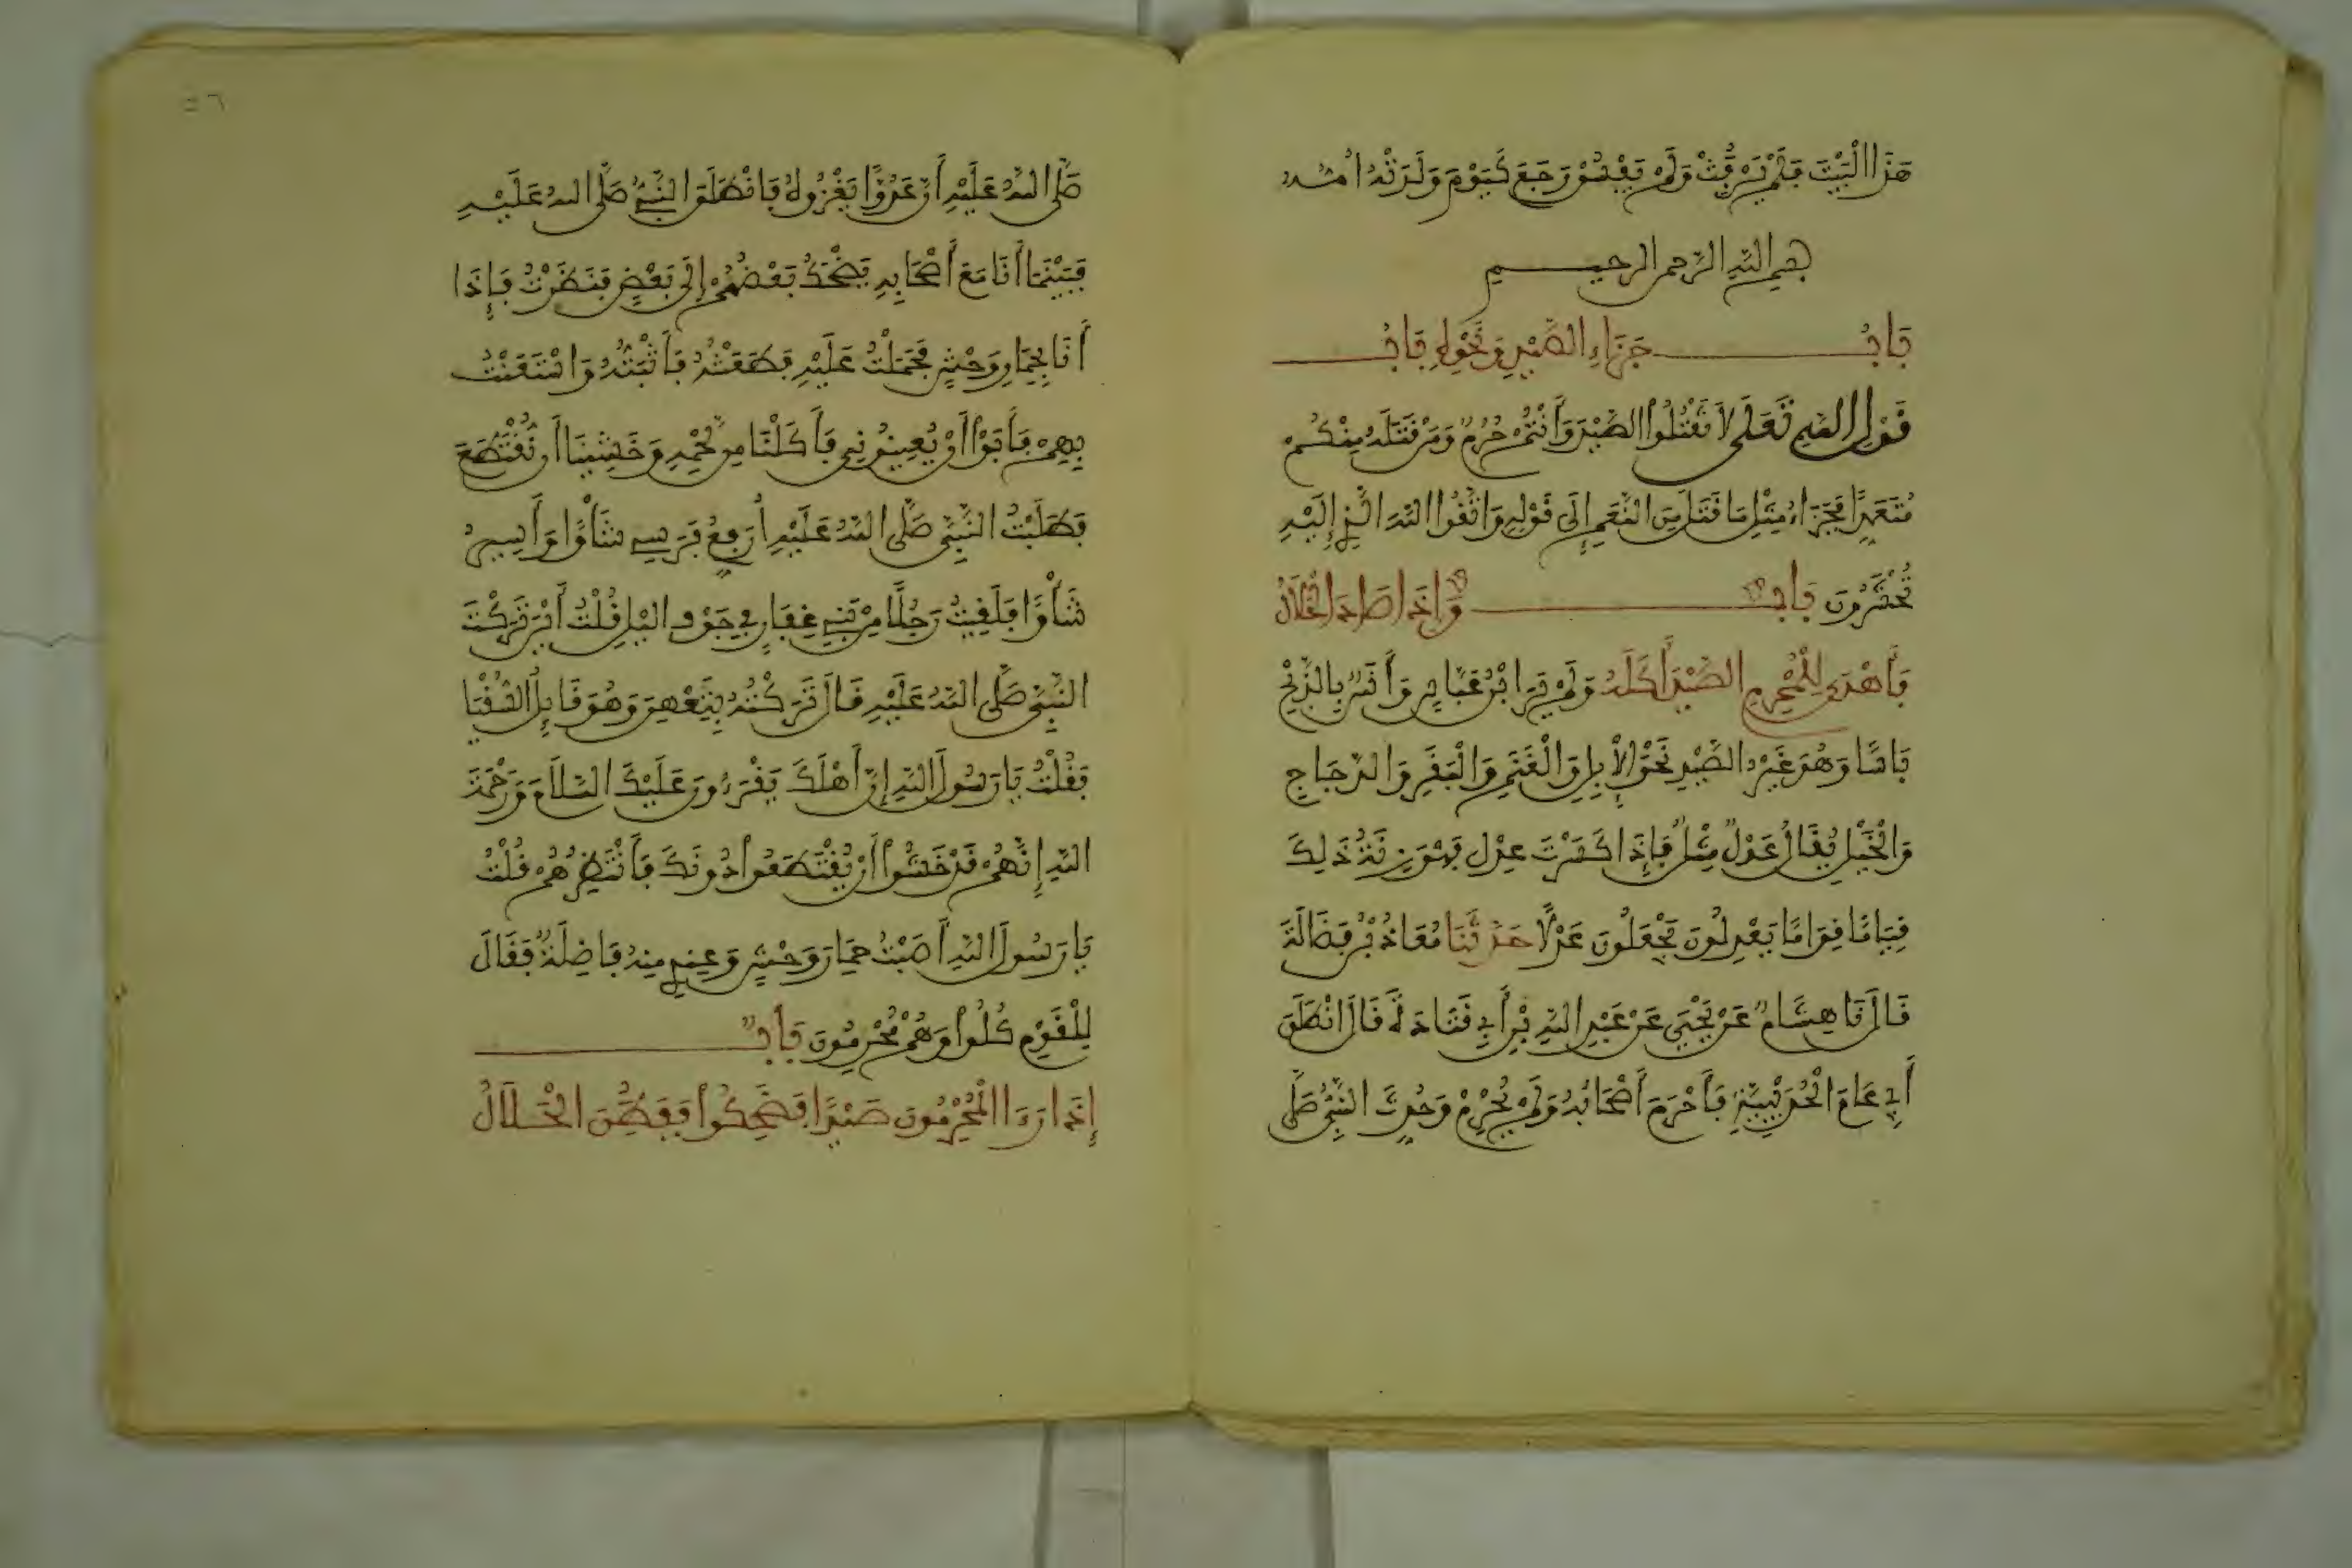 هَذَا الْبَيْتَ فَلَمْ يَرْفُثْ وَلَمْ يَفْسُقْ رَجَعَ كَيَوْمَ وَلَدَتْهُ أُمُّهُ
بسم الله الرحمن الرحيم
بَابُ جَزَاءِ الصَّيْدِ وَنَحْوِهِ بَابُ
قَوْلِ اللهِ تَعَلَى لاَ تَقْتُلُوا الصَّيْدَ وَأَنْتُمْ حُرُمٌ وَمَن قَتَلَهُ مِنْكُمْ
مُتَعَمِّدًا فَجَزَاءُ مِثْلِ مَا قَتَلَ مِنَ النَّعَمِ إِلَى قَوْلِهِ وَاتَّقُوا اللهَ الَّذِي إِلَيْهِ
تُحْشَرُونَ بَابٌ وَإِذَا صَادَ الْحَلاَلُ
فَأَهْدَى لِلْمُحْرِمِ الصَّيْدَ أَكَلَهُ وَلَمْ يَرَ ابْنُ عَبَّاسٍ وَأَنَسٌ بِالذَّبْحِ
بَاسًا وَهُوَ غَيْرُ الصَّيْدِ نَحْوُ الإِبِلِ وَالْغَنَمِ وَالْبَقَرِ وَالدَّجَاجِ
وَالْخَيْلِ يُقَالُ عَدْلٌ مِثْلٌ فَإِذَا كَسَرْتَ عِدْل فَهْوَ زِنَةُ ذَلِكَ
قِيَامًا قِوَامًا يَعْدِلُونَ يَجْعَلُونَ عَدْلًا حَدَّثَنَا مُعَاذُ بْنُ فَضَالَةَ
قَالَ نَا هِشَامٌ عَنْ يَحْيَى عَنْ عَبْدِ اللهِ بْنِ أَبِي قَتَادَةَ قَالَ انْطَلَقَ
أَبِي عَامَ الْحُدَيْبِيَةِ فَأَحْرَمَ أَصْحَابُهُ وَلَمْ يُحْرِمْ وَحُدِّثَ النَّبِيُّ صَلَّى
٥٦
صَلَّى اللهُ عَلَيْهِ أَنَّ عَدُوًّا يَغْزُوهُ فَانْطَلَقَ النَّبِيُّ صَلَّى اللهُ عَلَيْهِ
فَبَيْنَمَا أَنَا مَعَ أَصْحَابِهِ يَضْحَكُ بَعْضُهُمْ إِلَى بَعْضٍ فَنَظَرْتُ فَإِذَا
أَنَا بِحِمَارِ وَحْشٍ فَحَمَلْتُ عَلَيْهِ فَطَعَنْتُهُ فَأَثْبَتُّهُ وَاسْتَعَنْتُ
بِهِمْ فَأَبَوْا أَنْ يُعِينُونِي فَأَكَلْنَا مِن لَحْمِهِ وَخَشِينَا أَن نُقْتَطَعَ
فَطَلَبْتُ النَّبِيَّ صَلَّى اللهُ عَلَيْهِ أُرَفِّعُ فَرَسِي شَأْوًا وَأَسِيرُ
شَأْوًا فَلَقِيتُ رَجُلًا مِنْ بَنِي غِفَارٍ فِي جَوْفِ اليْلِ قُلْتُ أَيْنَ تَرَكْتَ
النَّبِيَّ صَلَّى اللهُ عَلَيْهِ قَالَ تَرَكْتُهُ بِتِعْهِنَ وَهُوَ قَايِلٌ السُّقْيَا
فَقُلْتُ يَا رَسُولَ اللهِ إِنَّ أَهْلَكَ يَقْرَءُونَ عَلَيْكَ السَّلاَمَ وَرَحْمَةَ
اللهِ إِنَّهُمْ قَدْ خَشُوا أَنْ يُقْتَطَعُوا دُونَكَ فَانْتَظِرْهُمْ قُلْتُ
يَا رَسُولَ اللهِ أَصَبْتُ حِمَارَ وَحْشٍ وَعِنْدِي مِنْهُ فَاضِلَةٌ فَقَالَ
لِلْقَوْمِ كُلُوا وَهُمْ مُحْرِمُونَ بَابٌ
إِذَا رَءَا الْمُحْرِمُونَ صَيْدًا فَضَحِكُوا فَفَطِنَ الْحَلاَلُ